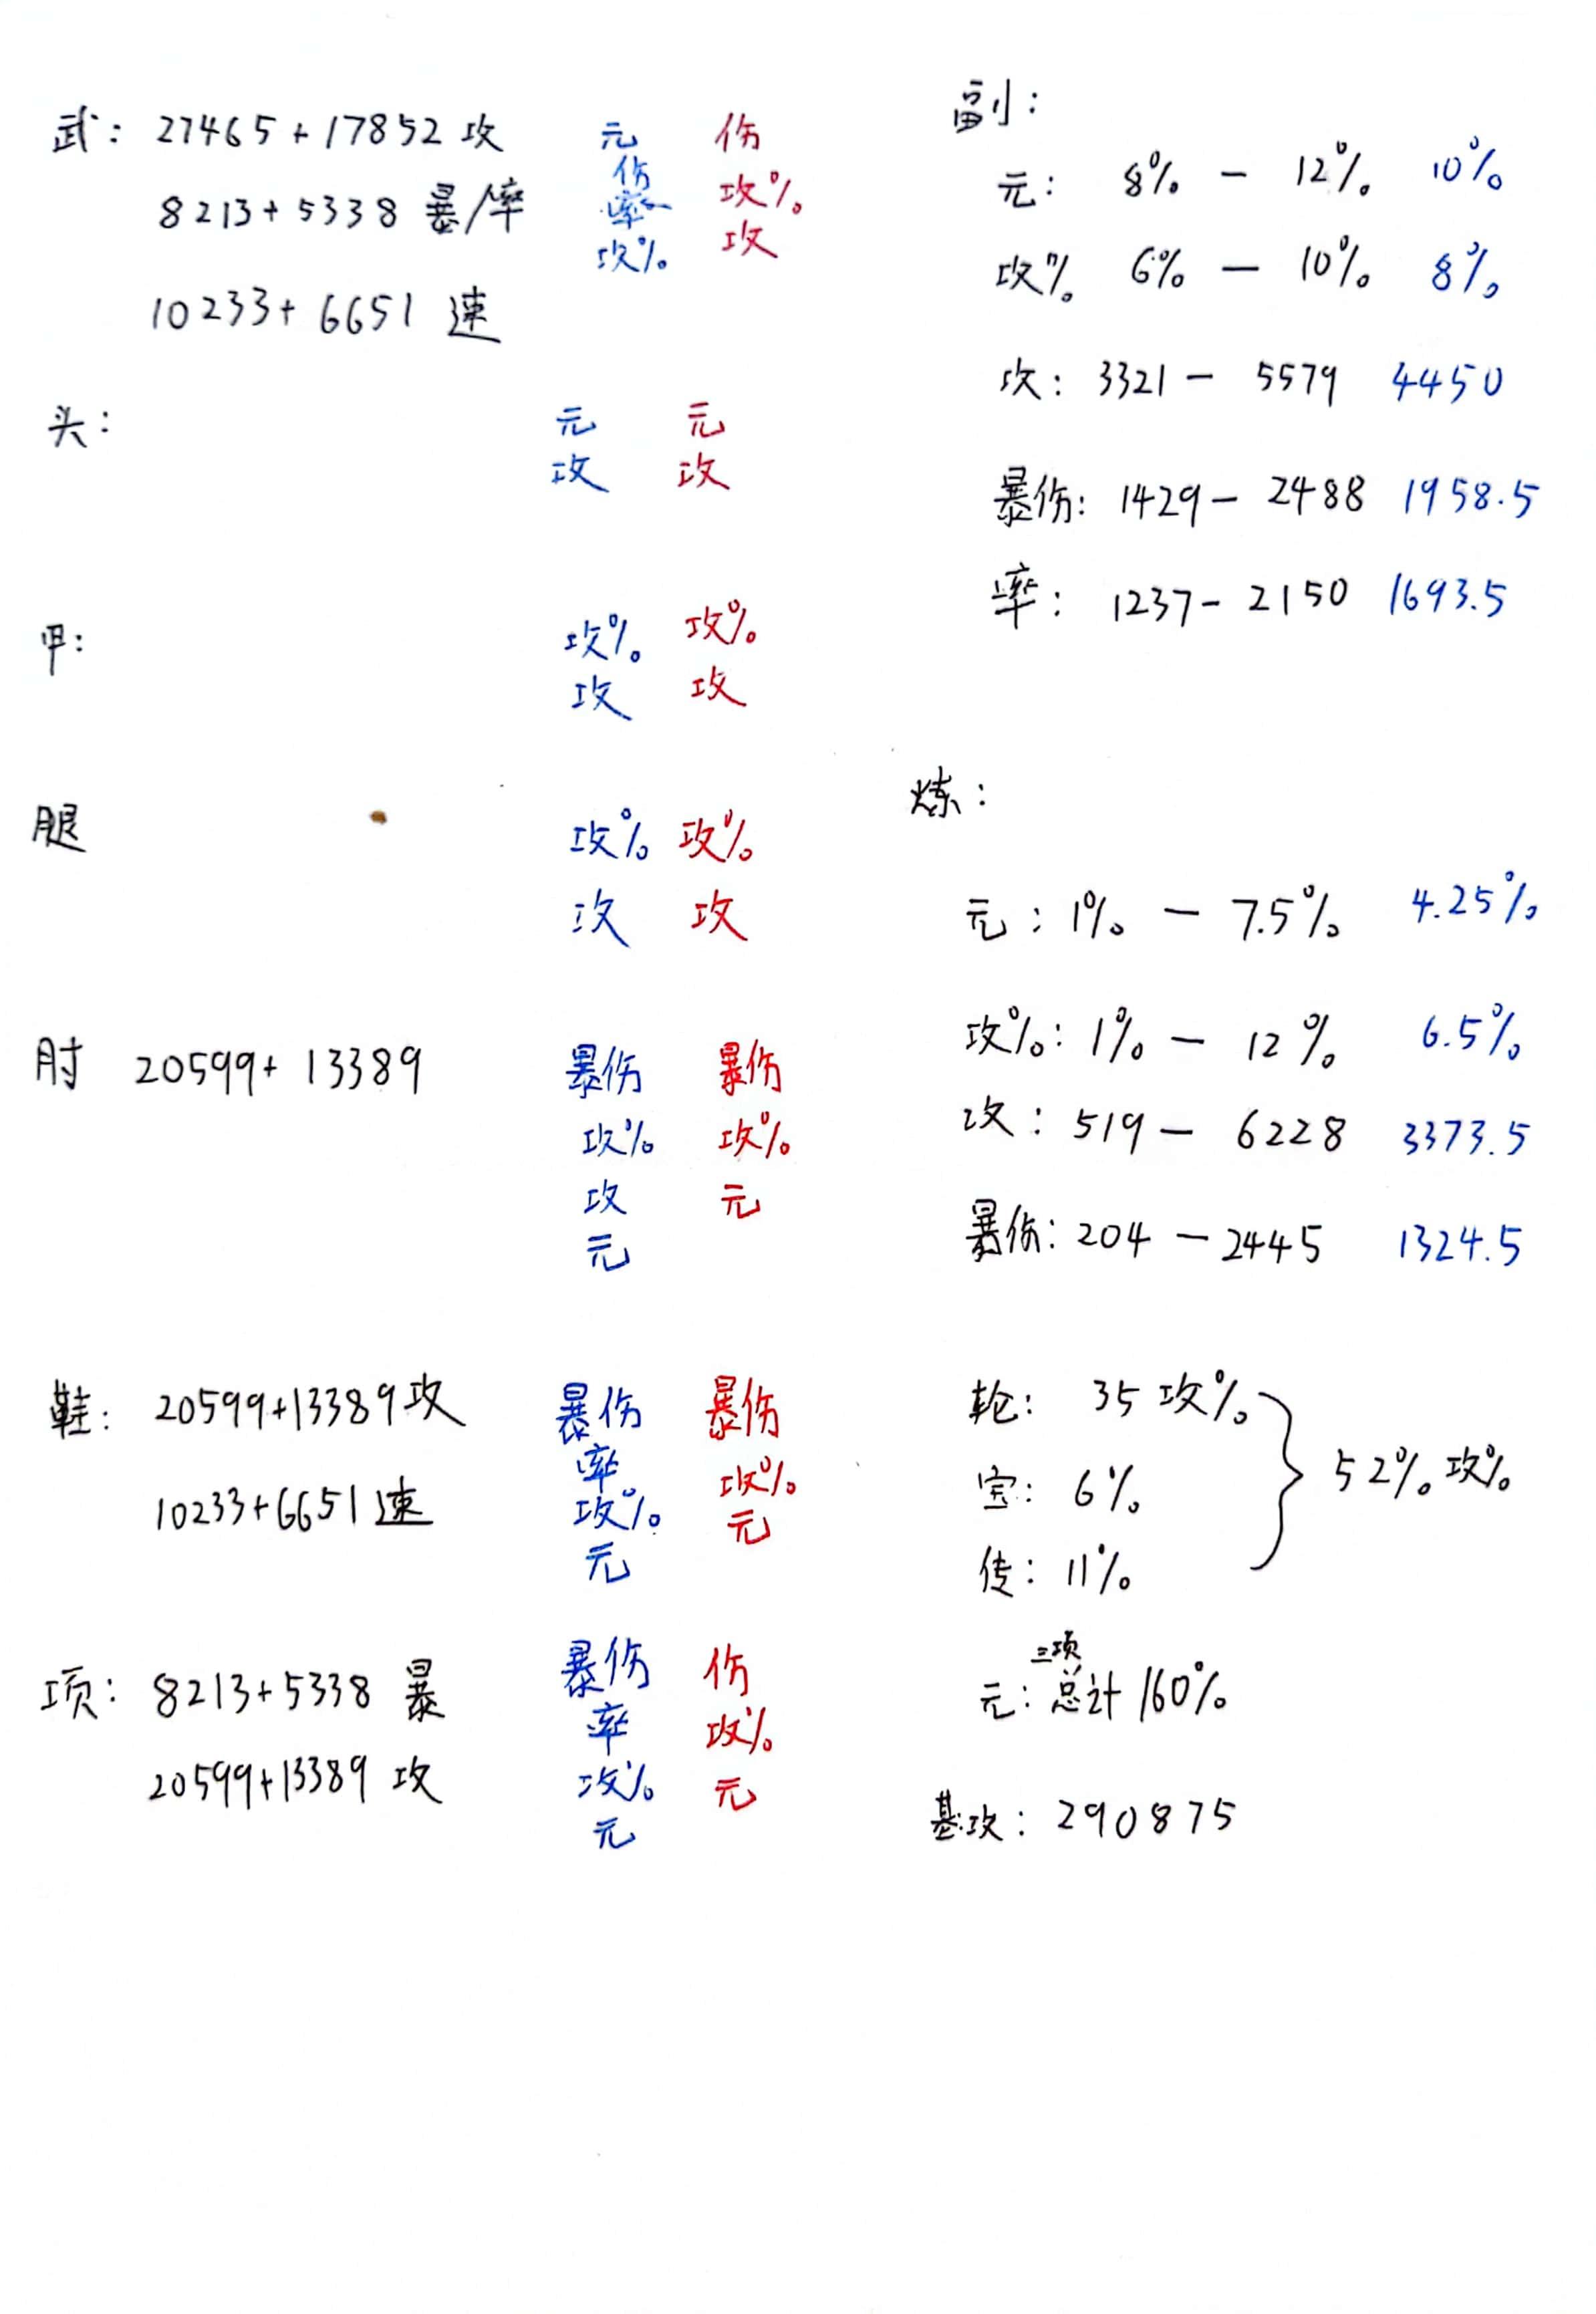 武：27465+17852 攻
8213+5338 暴/率
10233+6651 速
元
伤
率
攻%
伤
攻%
攻
头：
元
攻
元
攻
甲：
攻%
攻
攻%
攻
腿
攻%
攻
攻%
攻
肘 20599+13389
暴伤
攻%
攻
元
暴伤
攻%
元
鞋：20599+13389攻
10233+6651速
暴伤
率
攻%
元
暴伤
攻%
元
项：8213+5338 暴
20599+13389 攻
暴伤
率
攻%
元
伤
攻%
元
副：
元：8% - 12% 10%
攻% 6% - 10% 8%
攻：3321 - 5579 4450
暴伤：1429 - 2488 1958.5
率：1237 - 2150 1693.5
炼：
元：1% - 7.5% 4.25%
攻%：1% - 12% 6.5%
攻：519 - 6228 3373.5
暴伤：204 - 2445 1324.5
轮：35攻%
宝：6%
传：11%
52%攻%
三项
元：总计160%
基攻：290875